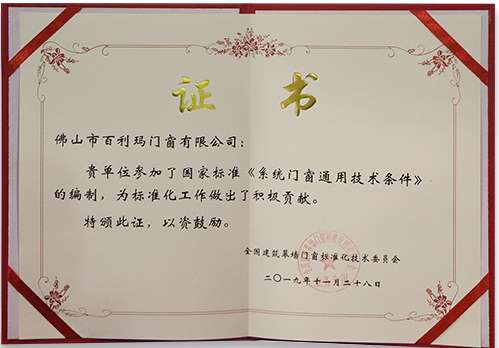 证书
佛山市百利玛门窗有限公司：
贵单位参加了国家标准《系统门窗通用技术条件》
的编制，为标准化工作做出了积极贡献。
特颁此证，以资鼓励。
全国建筑幕墙门窗标准化技术委员会
二〇一九年十一月二十八日